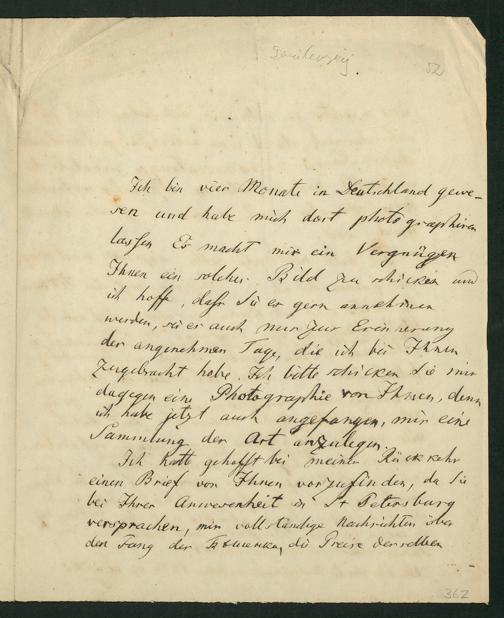 52
Ich bin vier Monate in Deutschland gewe-
sen und habe mich dort photographiren
lassen Es macht mir ein Vergnügen
Ihnen ein solches Bild zu schicken und
ich hoffe, daſs Sie es gern annehmen
werden, sei er auch nur zur Erinerung
der angenehmen Tage, die ich bei Ihnen
zugebracht habe. Ich bitte schicken Sie mir
dagegen eine Photographie von Ihnen, denn
ich habe jetzt auch angefangen, mir eine
Sammlung der Art anzulegen.
Ich hatte gehofft bei meiner Rückkehr
einen Brief von Ihnen vorzufinden, da Sie
bei Ihrer Anwesenheit in St Petersburg
versprachen, mir vollständige Nachrichten über
den Fang der die Preise derselben
362